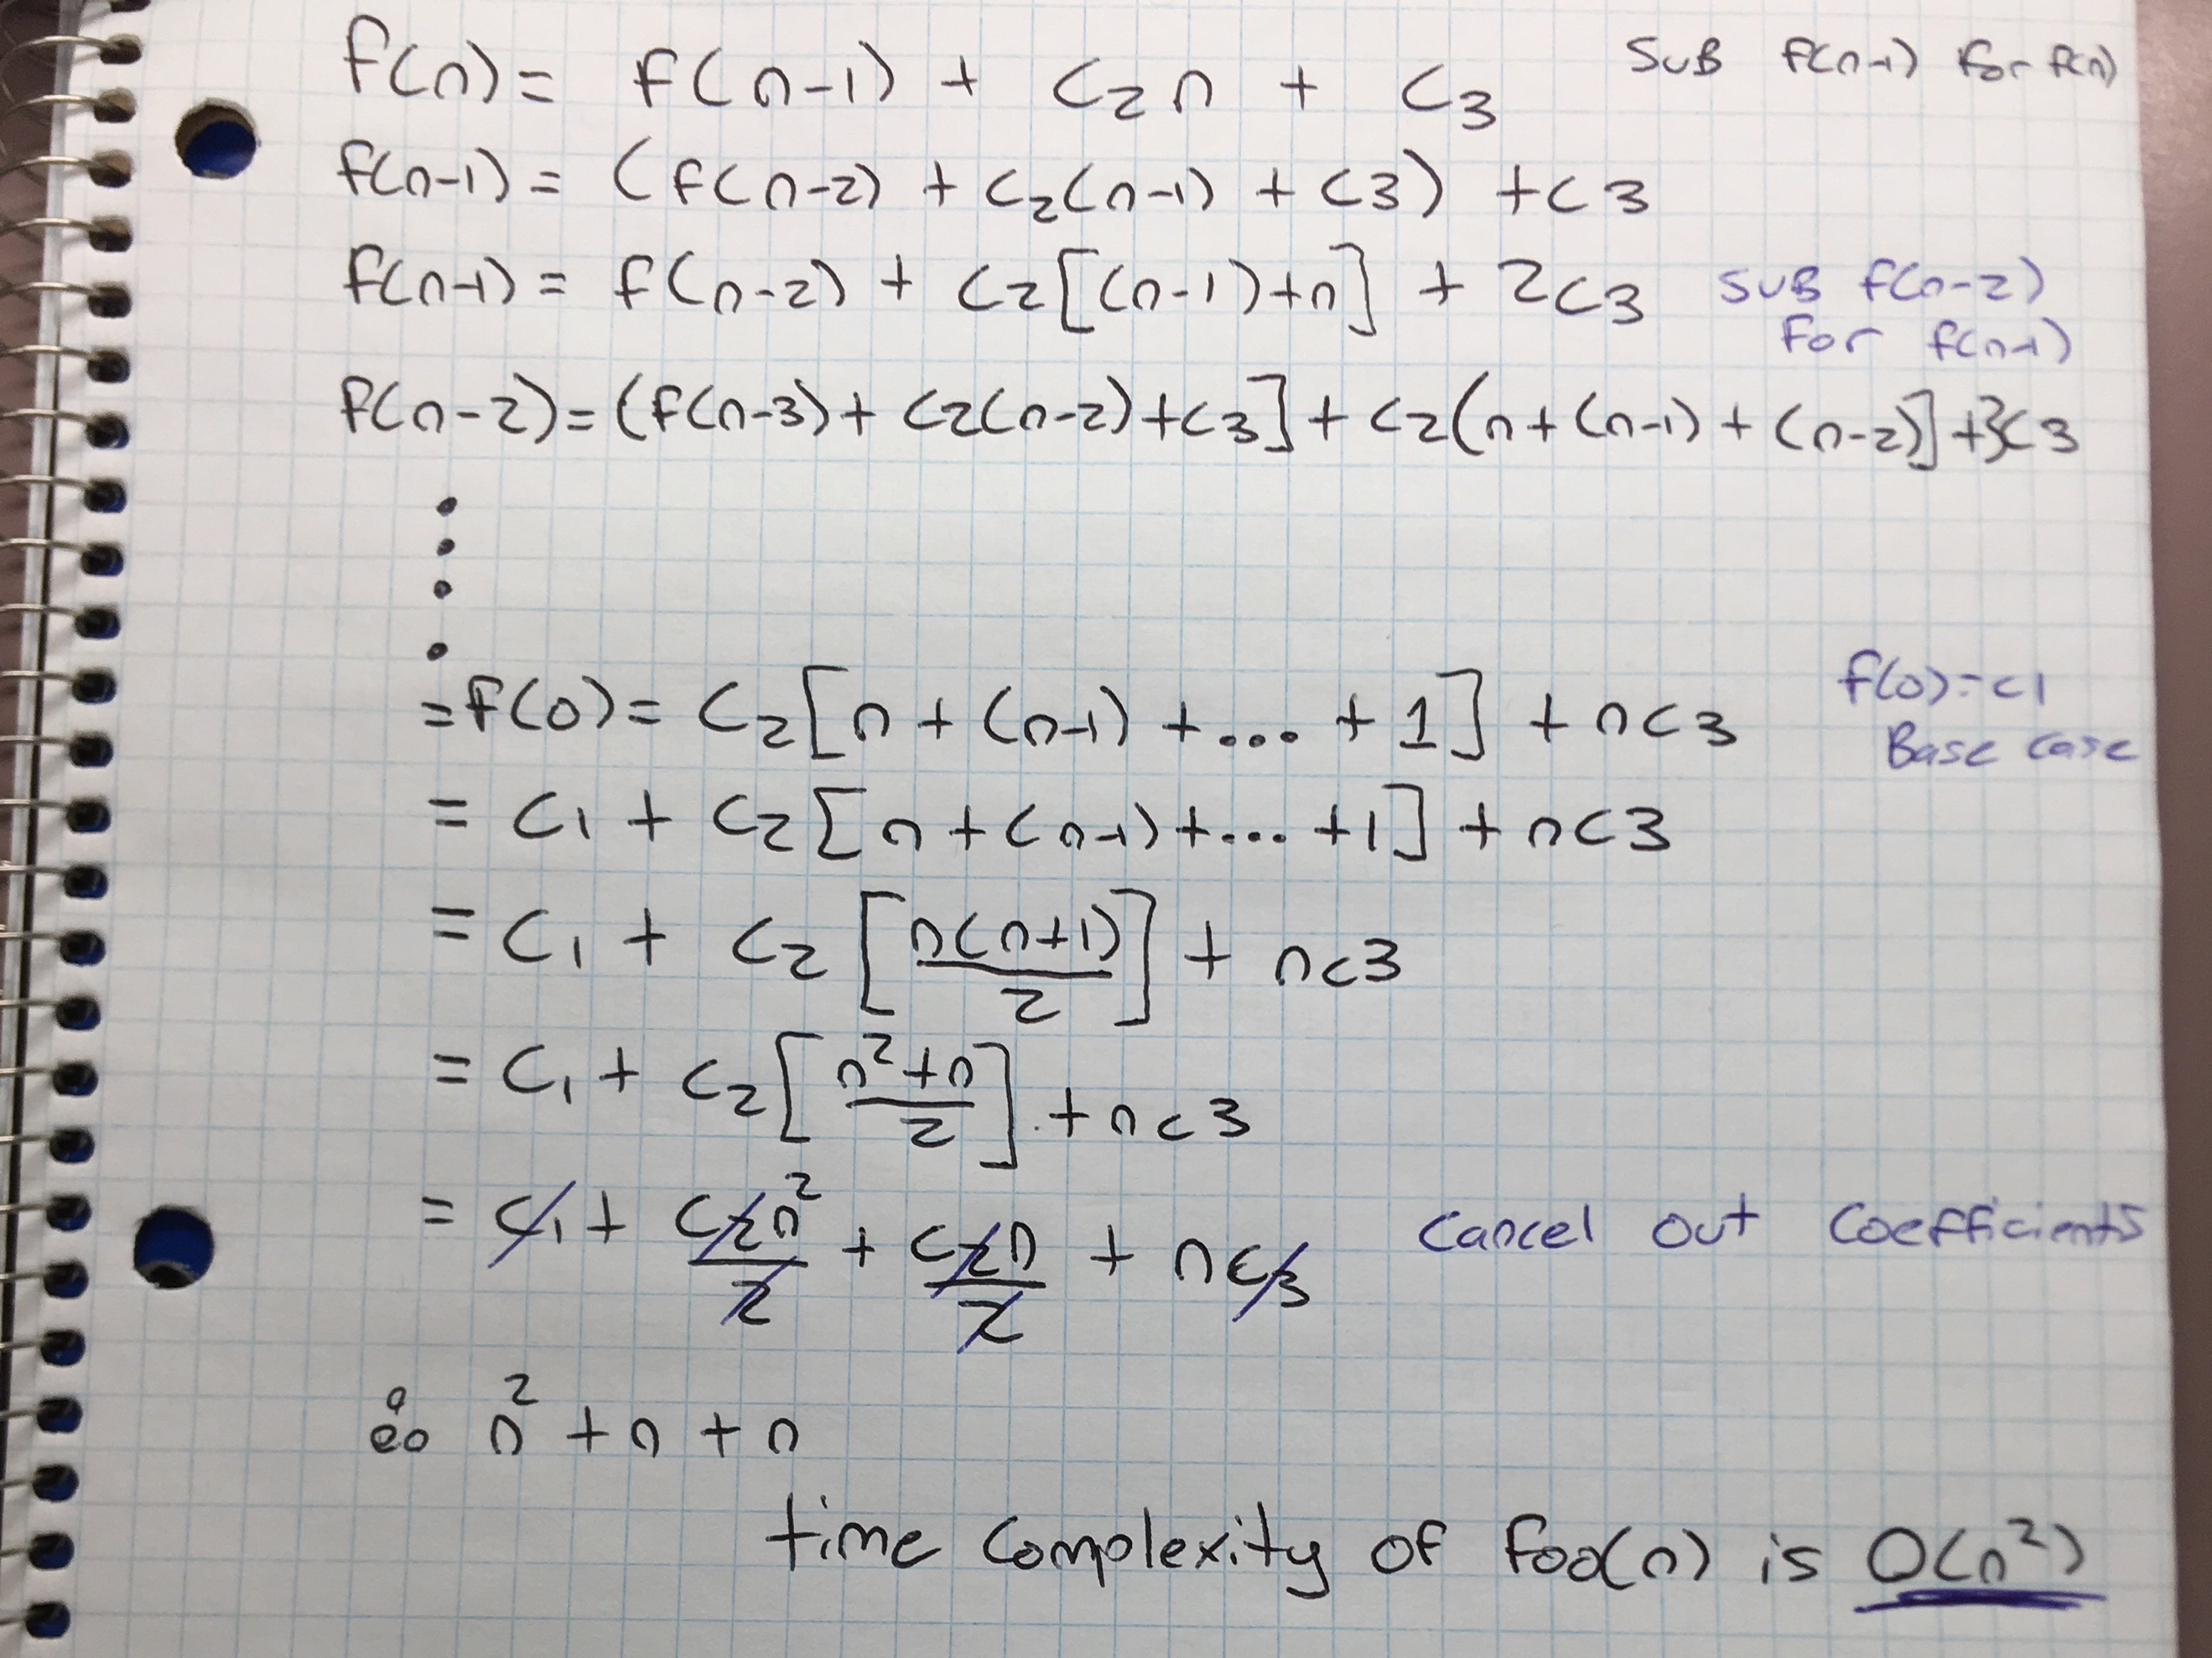 f(n) = f(n-1) + c₂n + c₃ SUB f(n-1) for f(n)
f(n-1) = (f(n-2) + c₂(n-1) + c3) + c3
f(n-1) = f(n-2) + c₂[(n-1)+n] + 2c3 SUB f(n-2)
For f(n-1)
f(n-2) = (f(n-3) + c2(n-2) + c3] + c2(n + (n-1) + (n-2)] + 3c3
= f(0) = c₂[n + (n-1) + ... + 1] + nc3 f(0) = c1
Base case
= c₁ + c₂[n + (n-1) + ... + 1] + nc3
= c₁ + c₂[n(n+1)/2] + nc3
= c₁ + c₂[n²+n/2] + nc3
= c₁ + c₂n²/2 + c₂n/2 + nc3 Cancel out Coefficients
n² + n + n
time complexity of foo(n) is O(n²)